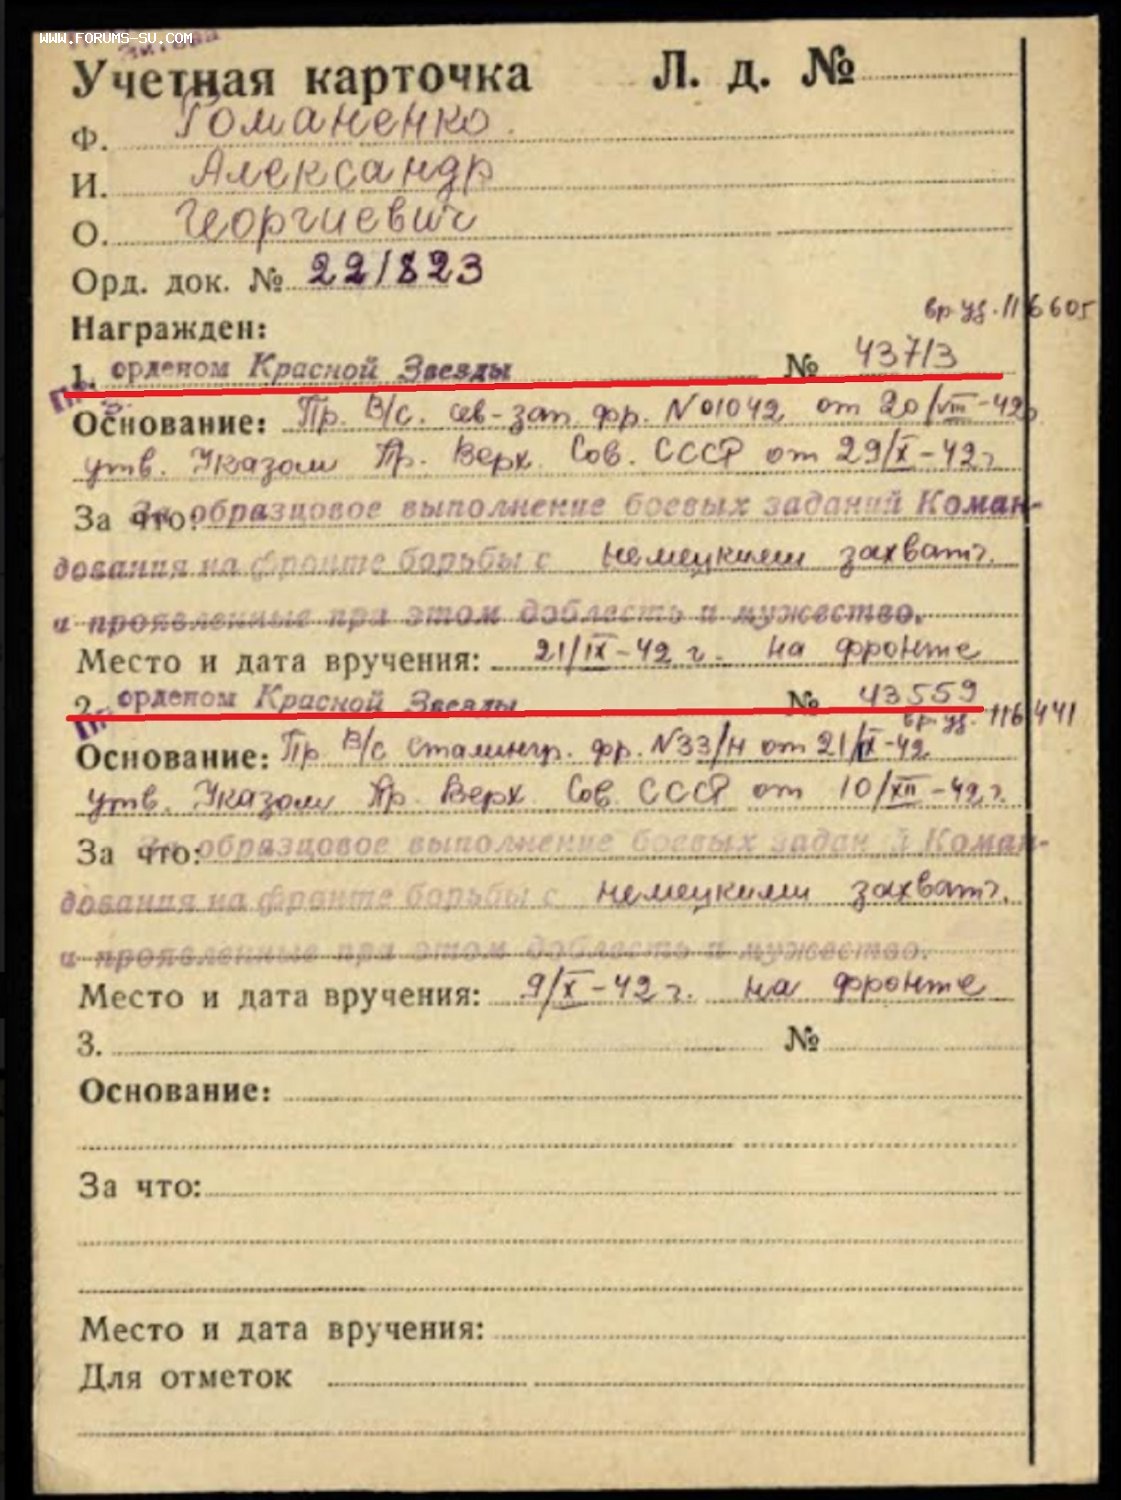 WWW.FORUMS-SU.COM
Учетная карточка Л. д. №
Ф. Романенко
И. Александр
О. Георгиевич
Орд. док. № 221823
Награжден:
вр. уд. 116605
1. орденом Красной Звезды № 43713
Основание: Пр. В/с. сев-зап. фр. №01042 от 20/VIII-42г
утв. Указом Пр. Верх. Сов. СССР от 29/X-42г
За что: За образцовое выполнение боевых заданий Коман-
дования на фронте борьбы с немецкими захватч.
и проявленные при этом доблесть и мужество.
Место и дата вручения: 21/IX-42 г. на фронте
2. орденом Красной Звезды № 43559
вр. уд. 116441
Основание: Пр В/с Сталингр. фр. №33/н от 21/IX-42
утв. Указом Пр. Верх. Сов. СССР от 10/XII-42г.
За что: За образцовое выполнение боевых заданий Коман-
дования на фронте борьбы с немецкими захватч.
и проявленные при этом доблесть и мужество.
Место и дата вручения: 9/X-42 г. на фронте
3. №
Основание:
За что:
Место и дата вручения:
Для отметок